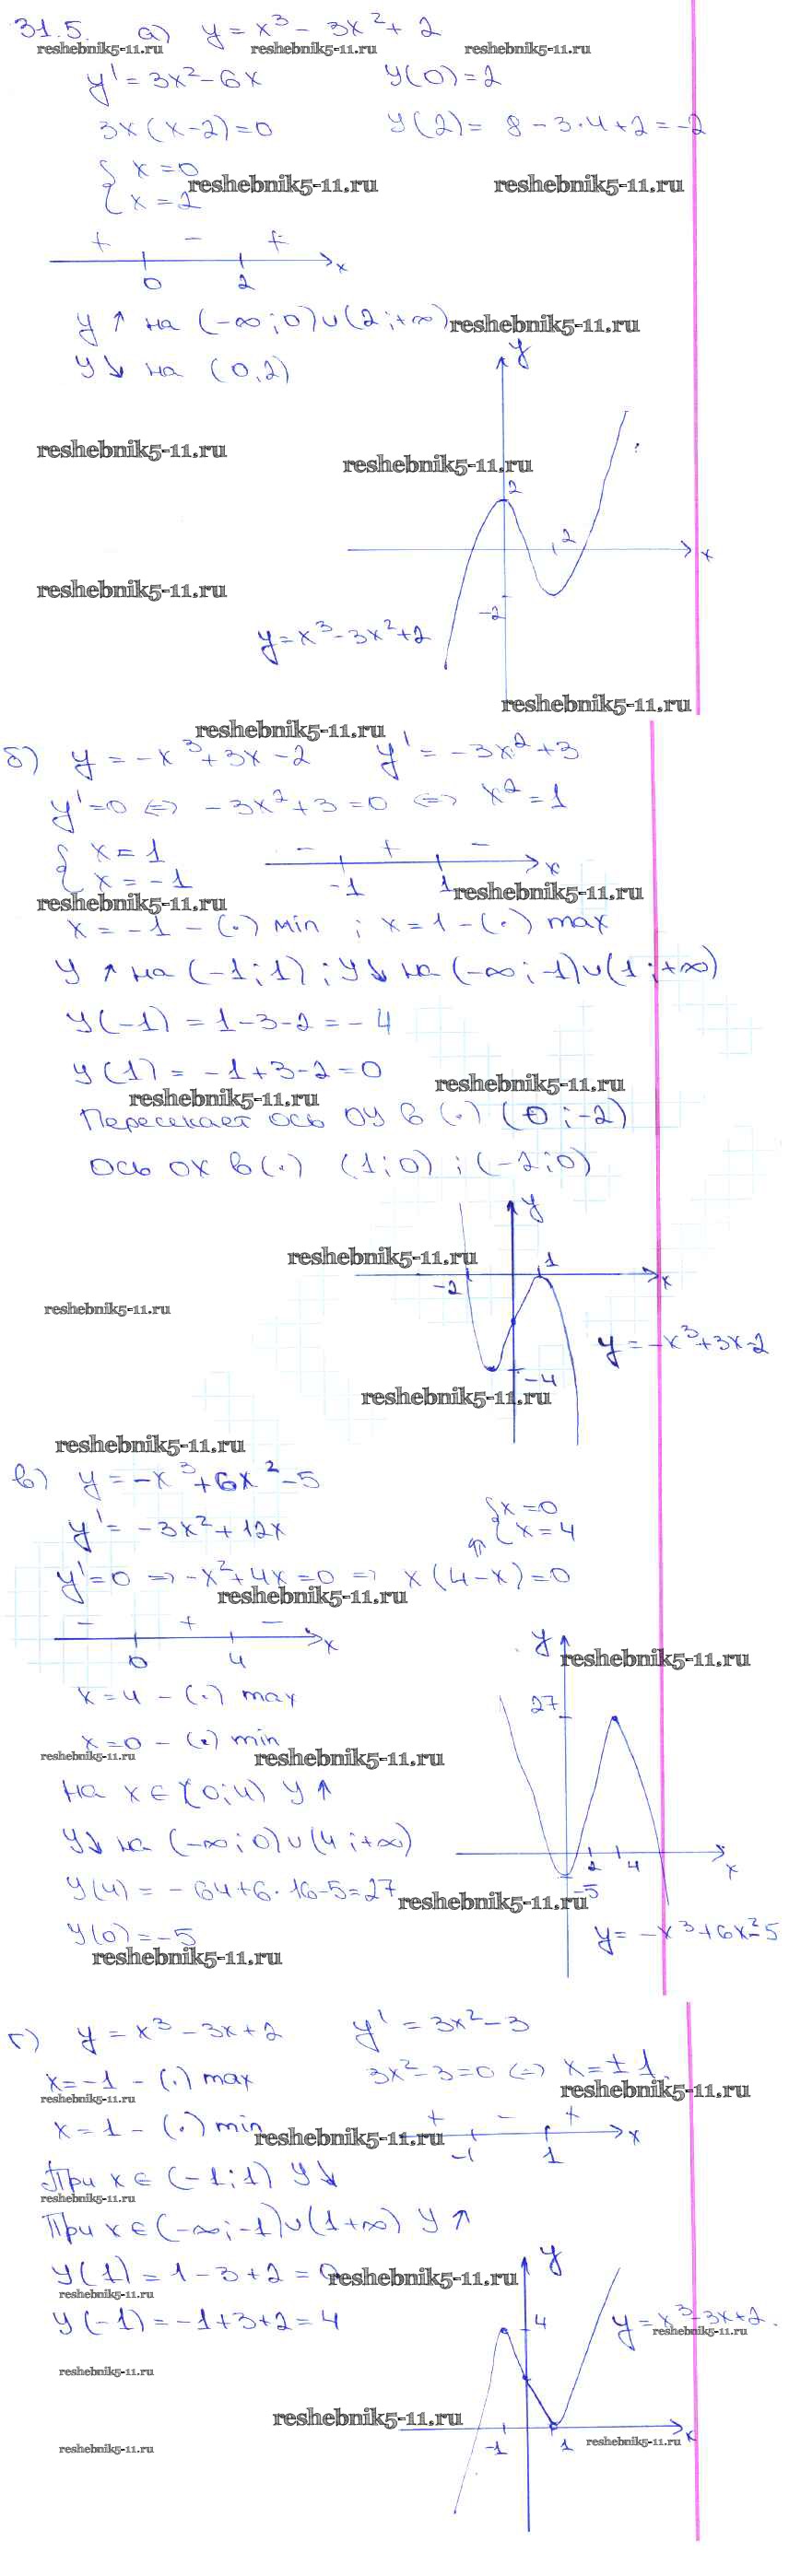 31.5. а) y = x³ - 3x² + 2
reshebnik5-11.ru reshebnik5-11.ru reshebnik5-11.ru
y' = 3x² - 6x y(0) = 2
3x(x-2)=0 y(2) = 8 - 3·4 + 2 = -2
{ x = 0
reshebnik5-11.ru reshebnik5-11.ru
x = 2
+ - +
0 2 x
y ↑ на (-∞; 0)∪(2; +∞) reshebnik5-11.ru
y ↓ на (0, 2)
y
reshebnik5-11.ru
reshebnik5-11.ru
2
2
x
reshebnik5-11.ru
-2
y = x³ - 3x² + 2
reshebnik5-11.ru
reshebnik5-11.ru
б) y = -x³ + 3x - 2 y' = -3x² + 3
y' = 0 ⇔ -3x² + 3 = 0 ⇔ x² = 1
{ x = 1
- + -
x = -1
-1 1 x
reshebnik5-11.ru
reshebnik5-11.ru
x = -1 - (·) min ; x = 1 - (·) max
y ↑ на (-1; 1) ; y ↓ на (-∞; -1)∪(1; +∞)
y(-1) = 1 - 3 - 2 = -4
y(1) = -1 + 3 - 2 = 0
reshebnik5-11.ru reshebnik5-11.ru
Пересекает ось OY в (·) (0; -2)
ось OX в (·) (1; 0) ; (-2; 0)
y
reshebnik5-11.ru
1
-2
x
reshebnik5-11.ru
y = -x³ + 3x - 2
-4
reshebnik5-11.ru
reshebnik5-11.ru
в) y = -x³ + 6x² - 5
{ x = 0
y' = -3x² + 12x
x = 4
⇑
y' = 0 ⇒ -x² + 4x = 0 ⇒ x(4-x) = 0
reshebnik5-11.ru
- + -
0 4 x
y
reshebnik5-11.ru
x = 4 - (·) max
27
x = 0 - (·) min
reshebnik5-11.ru reshebnik5-11.ru
на x ∈ (0; 4) y ↑
y ↓ на (-∞; 0)∪(4; +∞)
2 4 x
y(4) = -64 + 6·16 - 5 = 27
reshebnik5-11.ru
-5
y(0) = -5
y = -x³ + 6x² - 5
reshebnik5-11.ru
г) y = x³ - 3x + 2 y' = 3x² - 3
x = -1 - (·) max 3x² - 3 = 0 ⇔ x = ± 1.
reshebnik5-11.ru reshebnik5-11.ru
x = 1 - (·) min
reshebnik5-11.ru
+ - +
-1 1 x
При x ∈ (-1; 1) y ↓
reshebnik5-11.ru
При x ∈ (-∞; -1)∪(1 +∞) y ↑
y
y(1) = 1 - 3 + 2 = 0
reshebnik5-11.ru
reshebnik5-11.ru
y(-1) = -1 + 3 + 2 = 4
4
y = x³ - 3x + 2.
reshebnik5-11.ru
reshebnik5-11.ru
reshebnik5-11.ru
x
-1 1
reshebnik5-11.ru
reshebnik5-11.ru